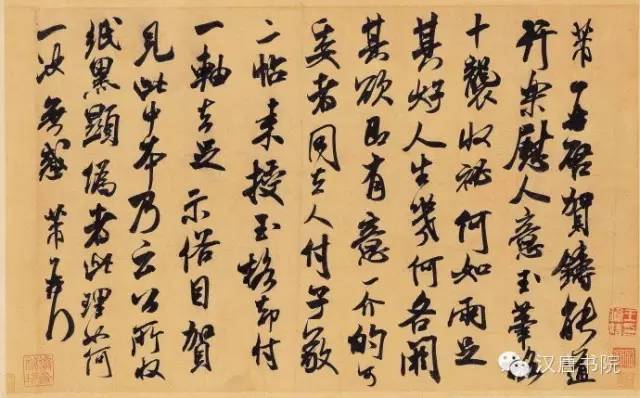 芾再啓賀鑄能道
行樂慰人意玉筆格
十襲收祕何如兩足
其好人生幾何各闕
其欲即有意一介的可
委者同去人付子敬
二帖來授玉格却付
一軸去足示俗目賀
見此中本乃云公所收
紙黑顯偽者此理如何
一決無惑芾
汉唐书院